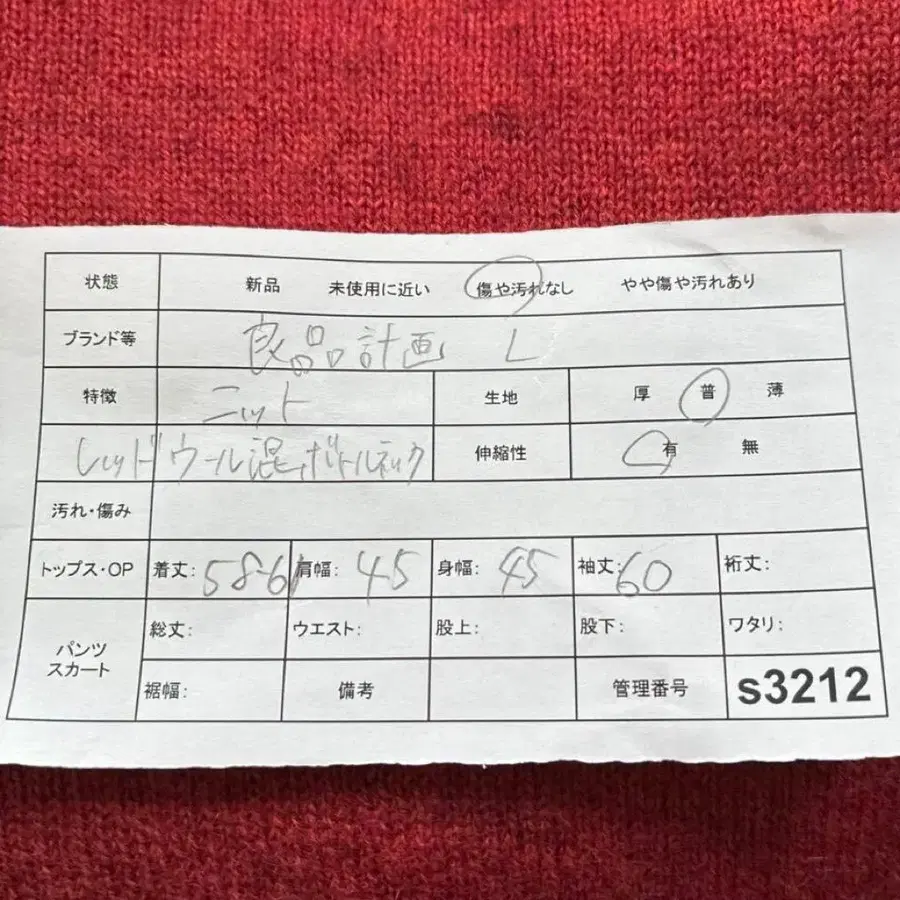 状態 新品 未使用に近い 傷や汚れなし やや傷や汚れあり
ブランド等 良品計画 L
特徴 ニット 生地 厚 普 薄
レッド ウール混 ボトルネック 伸縮性 有 無
汚れ・傷み
トップス・OP 着丈: 58-61 肩幅: 45 身幅: 45 袖丈: 60 裄丈:
パンツ スカート 総丈: ウエスト: 股上: 股下: ワタリ:
裾幅: 備考 管理番号 s3212